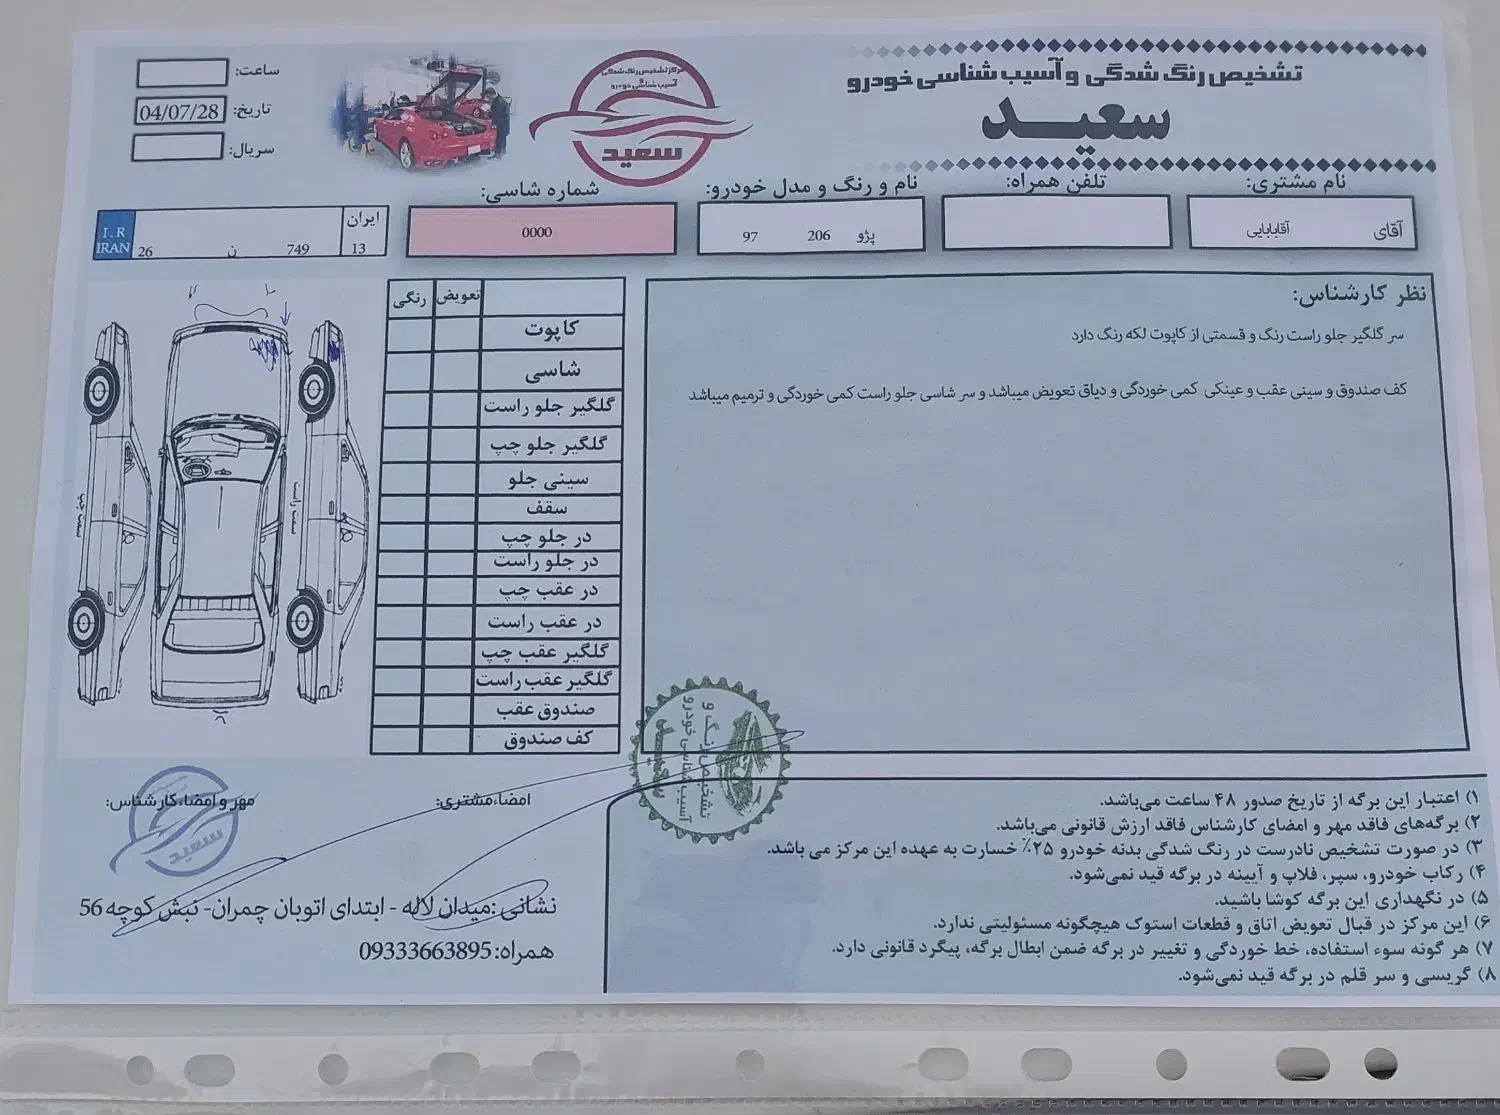 تشخیص رنگ شدگی و آسیب شناسی خودرو
سعید
مرکز تشخیص رنگ شدگی
و
آسیب شناسی خودرو
سعید
ساعت:
تاریخ: 04/07/28
سریال:
نام مشتری:
آقای آقابابایی
تلفن همراه:
نام و رنگ و مدل خودرو:
پژو 206 97
شماره شاسی:
0000
ایران
13
749 ن 26
I.R
IRAN
نظر کارشناس:
سر گلگیر جلو راست رنگ و قسمتی از کاپوت لکه رنگ دارد
کف صندوق و سینی عقب و عینکی کمی خوردگی و دیاق تعویض میباشد و سر شاسی جلو راست کمی خوردگی و ترمیم میباشد
تعویض رنگی
کاپوت
شاسی
گلگیر جلو راست
گلگیر جلو چپ
سینی جلو
سقف
در جلو چپ
در جلو راست
در عقب چپ
در عقب راست
گلگیر عقب چپ
گلگیر عقب راست
صندوق عقب
کف صندوق
سمت راست
سمت چپ
تشخیص رنگ و
آسیب شناسی خودرو
سعید
۱) اعتبار این برگه از تاریخ صدور ۴۸ ساعت می‌باشد.
۲) برگه‌های فاقد مهر و امضای کارشناس فاقد ارزش قانونی می‌باشد.
۳) در صورت تشخیص نادرست در رنگ شدگی بدنه خودرو ۲۵٪ خسارت به عهده این مرکز می باشد.
۴) رکاب خودرو، سپر، فلاپ و آیینه در برگه قید نمی‌شود.
۵) در نگهداری این برگه کوشا باشید.
۶) این مرکز در قبال تعویض اتاق و قطعات استوک هیچگونه مسئولیتی ندارد.
۷) هر گونه سوء استفاده، خط خوردگی و تغییر در برگه ضمن ابطال برگه، پیگرد قانونی دارد.
۸) گریسی و سر قلم در برگه قید نمی‌شود.
امضاء مشتری:
مهر و امضاء کارشناس:
سعید
نشانی :میدان لاله - ابتدای اتوبان چمران- نبش کوچه 56
همراه:09333663895